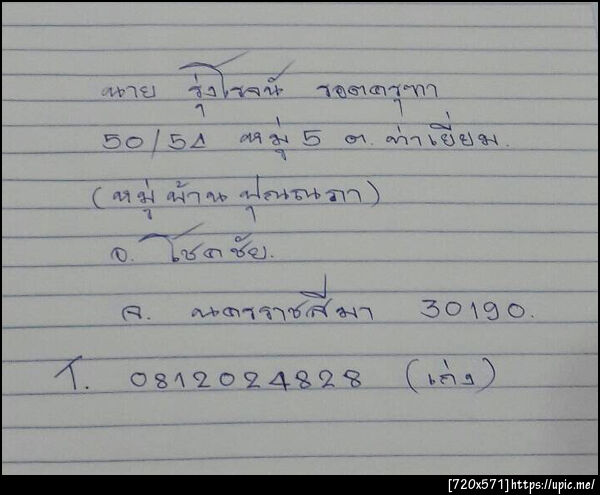 นาย รุ่งโรจน์ รอตครุฑา
50/54 หมู่ 5 ต. ท่าเยี่ยม.
(หมู่บ้าน ปุณณภา)
อ. โชคชัย.
จ. นครราชสีมา 30190.
T. 0812024828 (เก่ง)
[720x571]https://upic.me/